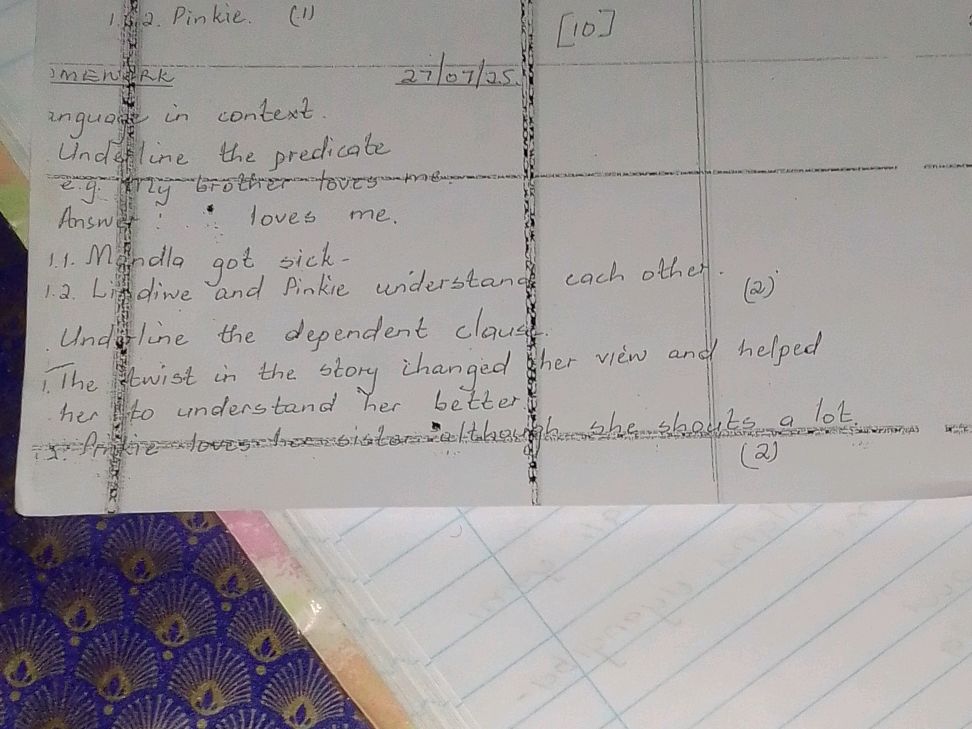 1. 2. Pinkie. (1)
[10]
OMEWORK 27/07/25.
anguage in context.
Underline the predicate
e.g. My brother loves me.
Answer: loves me.
1.1. Mandla got sick-
1.2. Lindiwe and Pinkie understand each other. (2)
Underline the dependent clause.
1. The twist in the story changed her view and helped
her to understand her better.
Pinkie loves her sister although she shouts a lot.
(2)